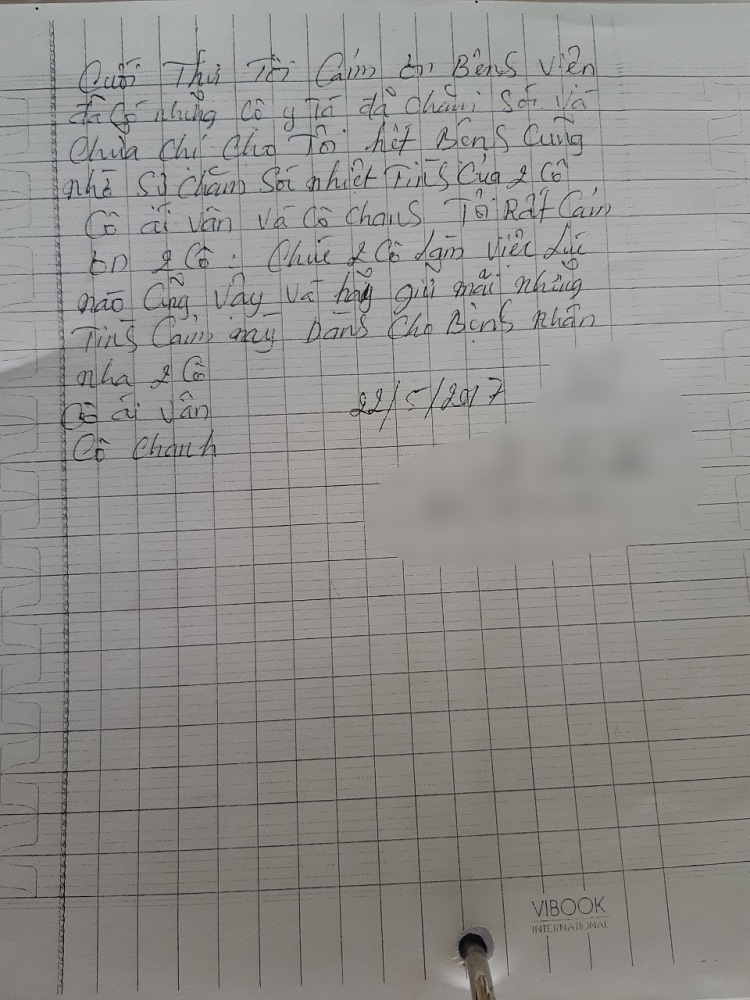 Cuối Thư Tôi Cám ơn Bênh viên
đã Có những Cô y Tá đã chăm Sóc và
Chửa Chị Cho Tôi hết Bênh Cũng
nhờ Sự chăm Sóc nhiệt Tình Của 2 Cô
Cô ái Vân và Cô Chanh Tôi Rất Cám
ơn 2 Cô. Chúc 2 Cô Làm việc Lúc
nào Cũng Vậy Và hãy giữ mãi những
Tình Cảm này Dành Cho Bệnh nhân
nha 2 Cô
Cô ái Vân 22/5/2017
Cô Chanh
VIBOOK
INTERNATIONAL